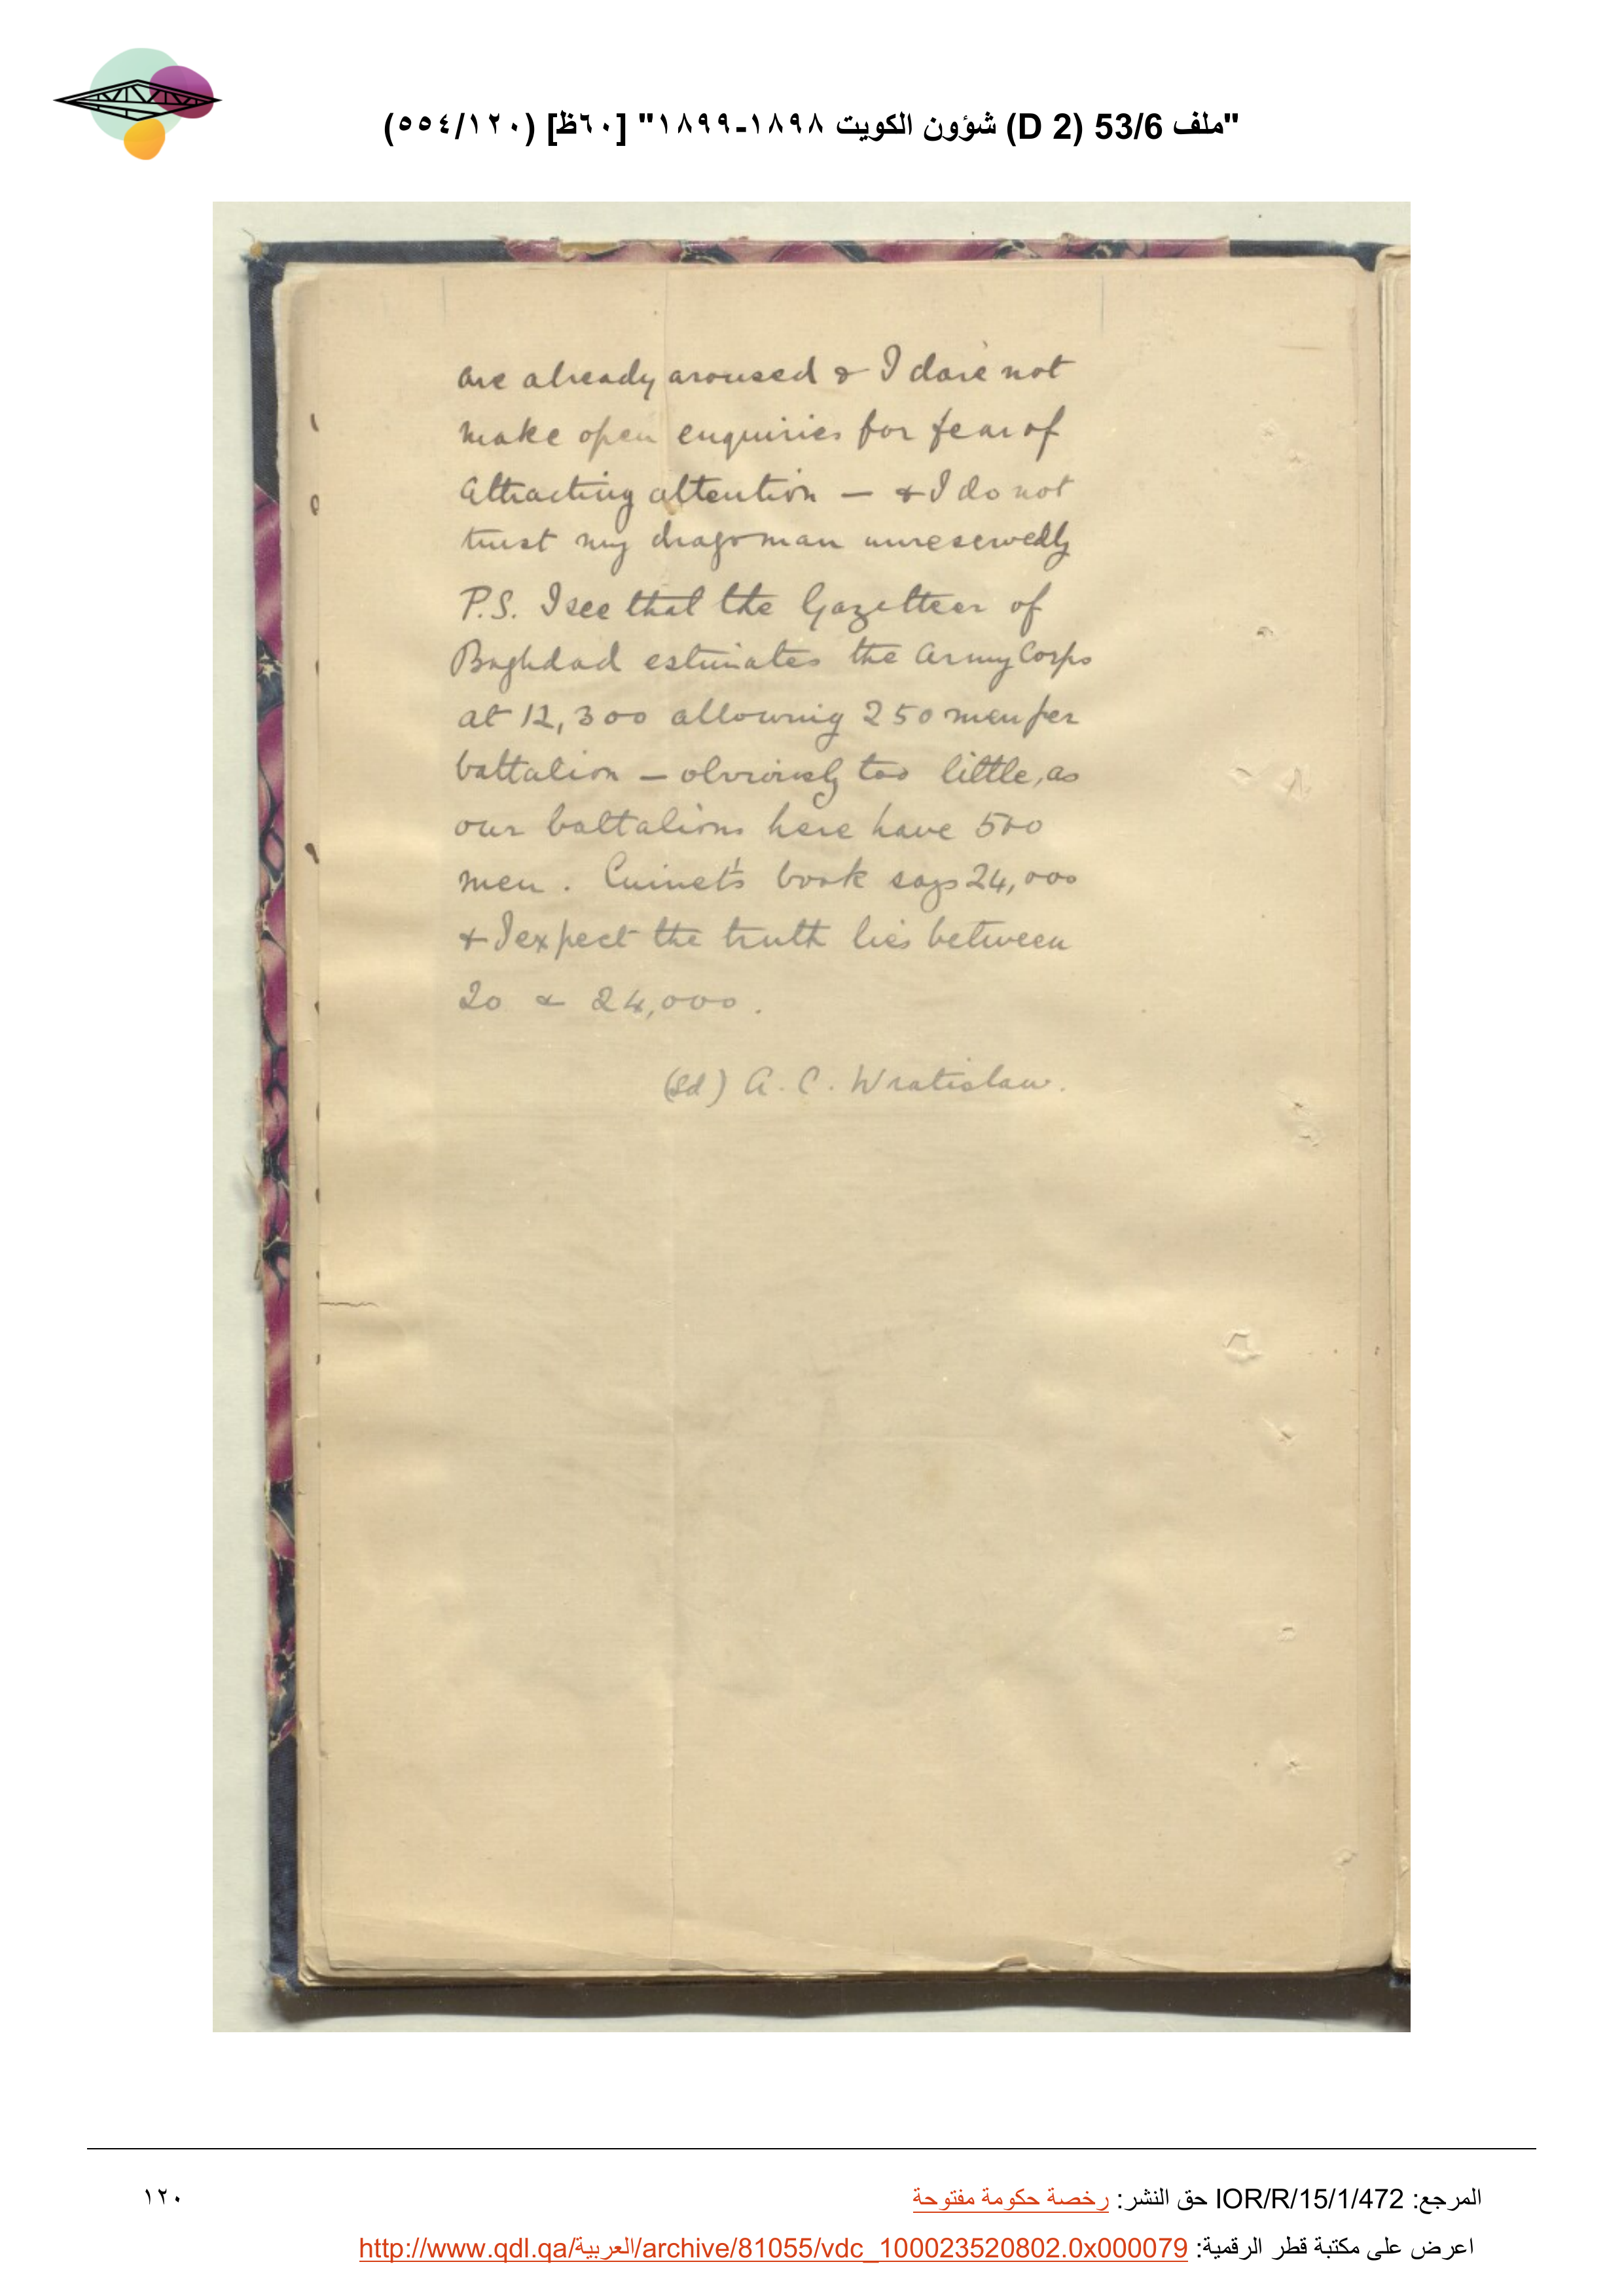 "ملف 53/6 (D 2) شؤون الكويت ١٨٩٨-١٨٩٩" [٦٠ظ] (٥٥٤/١٢٠)
are already aroused & I dare not
make open enquiries for fear of
attracting attention — & I do not
trust my dragoman unreservedly
P.S. I see that the Gazetteer of
Baghdad estimates the Army Corps
at 12,300 allowing 250 men per
battalion — obviously too little, as
our battalions here have 500
men. Cuinet's book says 24,000
& I expect the truth lies between
20 & 24,000.
(Sd) A. C. Wratislaw.
المرجع: IOR/R/15/1/472 حق النشر: رخصة حكومة مفتوحة
١٢٠
اعرض على مكتبة قطر الرقمية: http://www.qdl.qa/العربية/archive/81055/vdc_100023520802.0x000079